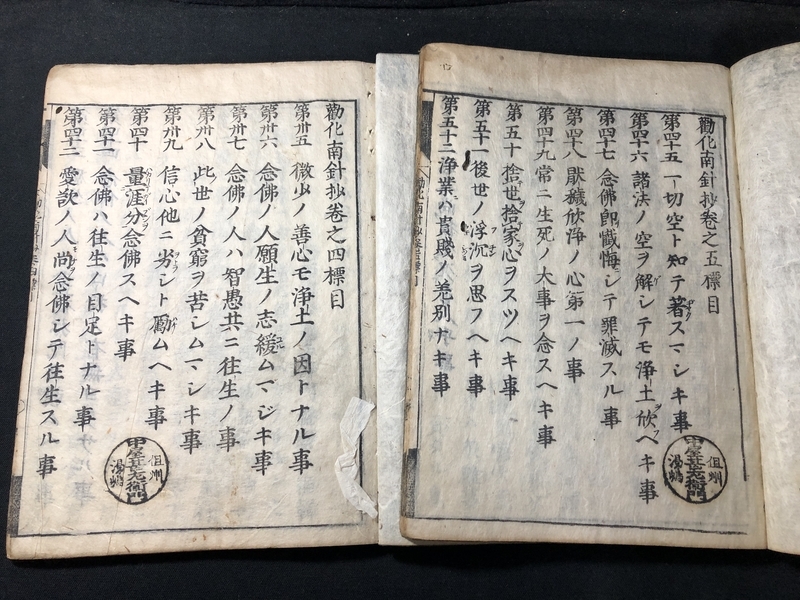 勸化南針抄卷之五標目
第四十五 一切空ト知テ著スマシキ事
第四十六 諸法ノ空ヲ解シテモ浄土欣ヘキ事
第四十七 念佛即懴悔シテ罪滅スル事
第四十八 厭穢欣浄ノ心第一ノ事
第四十九 常ニ生死ノ大事ヲ念スヘキ事
第五十 捨世捨家心ヲスツヘキ事
第五十一 後世ノ浮沉ヲ思フヘキ事
第五十二 浄業ハ貴賤ノ差別ナキ事
但州
湯嶋
勸化南針抄卷之四標目
第卅五 微少ノ善心モ浄土ノ因トナル事
第卅六 念佛ノ人願生ノ志緩ムマジキ事
第卅七 念佛ノ人ハ智愚共ニ往生ノ事
第卅八 此世ノ貧窮ヲ苦シムマシキ事
第卅九 信心他ニ劣シト勵ムヘキ事
第四十 量涯分念佛スヘキ事
第四十一 念佛ハ往生ノ目定トナル事
第四十二 愛欲ノ人尚念佛シテ往生スル事
但州
湯嶋